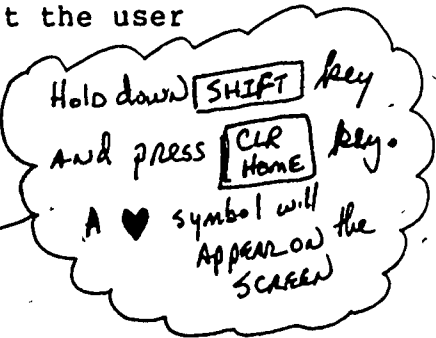 t the user
Hold down SHIFT key
And press CLR HOME key.
A ♥ symbol will
APPEAR ON the
SCREEN